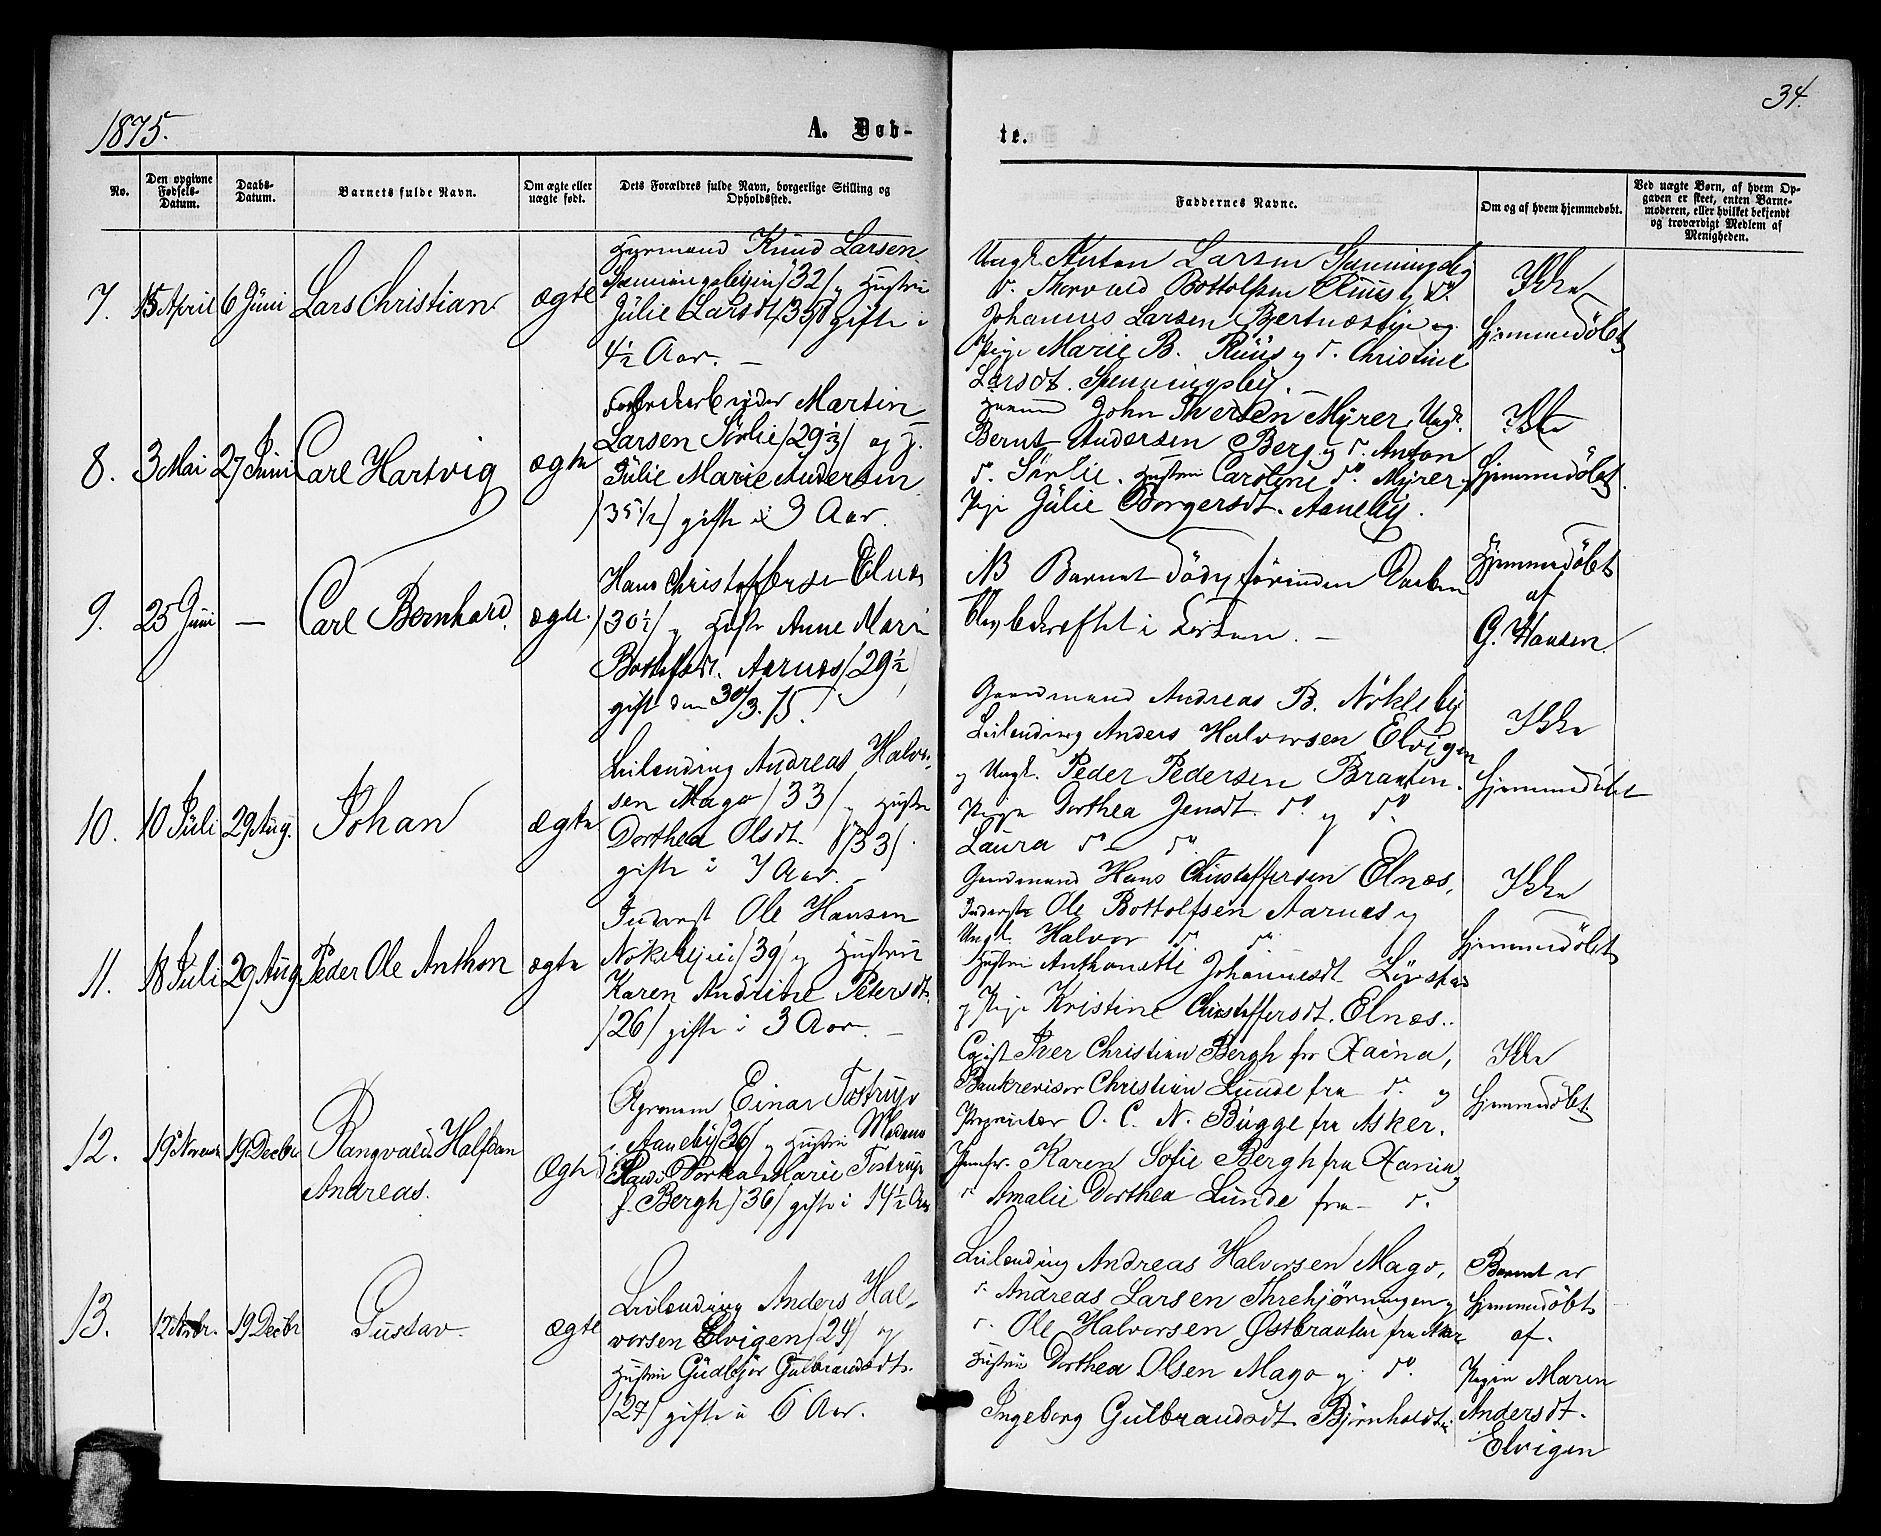 1875.
A. Døb-
te.
34.
No.
Den opgivne Fødsels-Datum.
Daabs-Datum.
Barnets fulde Navn.
Om ægte eller uægte født.
Dets Forældres fulde Navn, borgerlige Stilling og Opholdssted.
Faddernes Navne.
Om og af hvem hjemmedøbt.
Ved uægte Børn, af hvem Op-
gaven er skeet, enten Barne-
moderen, eller hvilket bekjendt
og troværdigt Medlem af
Menigheden.
7. 15 April 6 Juni Lars Christian ægte
Knud Larsen
/32/ og Hustru
Julie Larsdt /35/ gifte i
4½ Aar. —
Ungk. Anton Larsen
d. Thorvald Bottolfsen Ruus og do.
Johannes Larsen og
Pige Marie B. Ruus og d. Christine
Larsdt. Spenningsby. —
Ikke
hjemmedøbt
8. 3 Mai 27 Juni Carl Hartvig ægte
Martin
Larsen Sörlie /29½/ og H.
Julie Marie Andersen
/35½/ gifte i 3 Aar.
John Myrer, Ungk.
Bernt Andersen Berg og d. Anton
d. Sörlie. Hustru Caroline do. Myrer,
Pige Julie Borgersdt. Aaneby.
Ikke
hjemmedøbt.
9. 25 Juni — Carl Bernhard. ægte.
Hans Christoffersen Elnæs
/30½/ og Hustr Anne Marie
Bottolfsdt. Aarnæs /29½/
gift den 30/3.75.
NB Barnet døde forinden Daaben
blev bekræftet i Kirken. —
Hjemmedöbt
af
G. Hansen.
10. 10 Juli 29 Aug. Johan ægte
Leilending Andreas Halvor-
sen Mago /33/ og Hustru
Dorthea Olsdt. /33/.
gifte i 7 Aar. —
Gaardmand Andreas B. Nökleby
Leilending Anders Halversen Elvigen
og Ungk. Peder Pedersen Braaten.
Pige Dorthea Jensdt. do. og do.
Laura do — do.
Ikke
hjemmedöbt
11. 18 Juli 29 Aug Peder Ole Anthon ægte
Inderst Ole Hansen
Nökleby /39/ og Hustru
Karen Andrine Petersdt.
/26/ gifte i 3 Aar. —
Gaardmand Hans Christoffersen Elnæs,
Inderste Ole Bottolfsen Aarnæs og
Ungk. Halvor d. do.
Hustru Anthonette Johannesdt
og Pige Kristine Christoffersdt. Elnæs.
Ikke
hjemmedöbt
12. 19 Novembr 19 Decbr Rangvald Halfdan
Andreas. Ægte
Agronom Einar Tostrup
i Aaneby /36/ og Hustru Madam
Marie Tostrup
f. Bergh /36/ gifte i 14½ Aar
Copist Iver Christian Bergh fra Xania,
Bankrevisor Christian Lunde fra d. og
Proprietær O. C. N. Bugge fra Asker.
Jomfr. Karen Sofie Bergh fra Xania og
d. Amalie Dorthea Lunde fra — d.
Ikke
hjemmedöbt.
13. 12 Novbr. 19 Decbr Gustav. ægte
Leilending Anders Hal-
versen Elvigen /29/ og
Hustru Gudbjör Gulbrandsdt.
/27/ gifte i 6 Aar.
Leilending Andreas Halversen Mago,
d. Andreas Larsen og
d. Ole Halversen Østbraaten fra Aker
Hustru Dorthea Olsen Mago og do.
Ingeborg Gulbrandsdt. Björnholdt.
Barnet er
hjemmedøbt
af.
Pigen Maren
Andersdt.
Elvigen